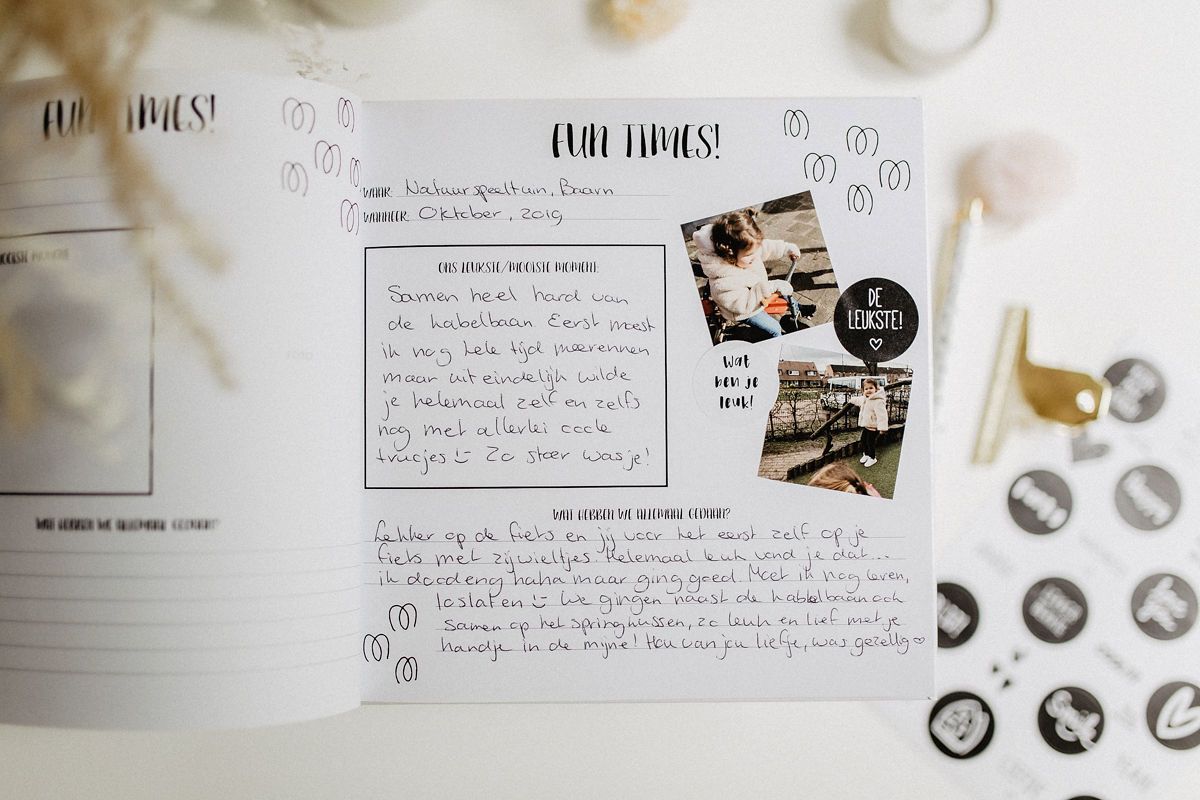 FUN TIMES!
MOOISTE MOMENT:
WAT HEBBEN WE ALLEMAAL GEDAAN?
FUN TIMES!
WAAR: Natuurspeeltuin, Baarn
WANNEER: Oktober, 2019
ONS LEUKSTE/MOOISTE MOMENT:
Samen heel hard van
de kabelbaan. Eerst moest
ik nog hele tijd meerennen
maar uiteindelijk wilde
je helemaal zelf en zelfs
nog met allerlei coole
trucjes Zo stoer was je!
DE
LEUKSTE!
Wat
ben je
leuk!
WAT HEBBEN WE ALLEMAAL GEDAAN?
Lekker op de fiets en jij voor het eerst zelf op je
fiets met zijwieltjes. Helemaal leuk vond je dat...
ik doodeng haha maar ging goed. Moet ik nog leren,
loslaten We gingen naast de kabelbaan ook
samen op het springkussen, zo leuk en lief met je
handje in de mijne! Hou van jou liefje, was gezellig ♡